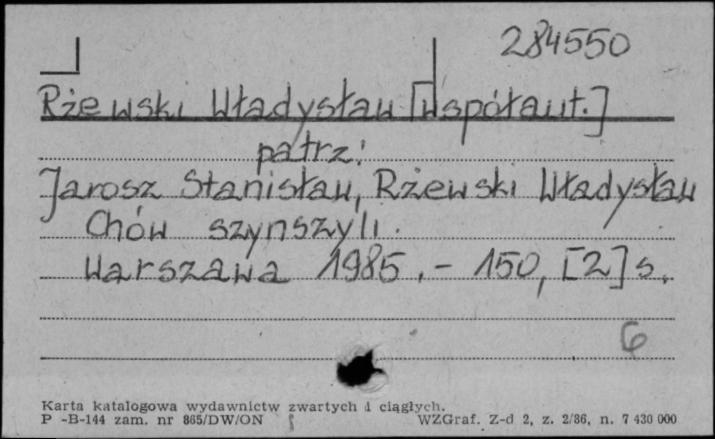 284550
Rżewski Władysław [współaut.]
patrz:
Jarosz Stanisław, Rżewski Władysław
Chów szynszyli.
Warszawa 1985. - 150, [2] s.
6
Karta katalogowa wydawnictw zwartych i ciągłych.
P -B-144 zam. nr 865/DW/ON WZGraf. Z-d 2, z. 2/86, n. 7 430 000